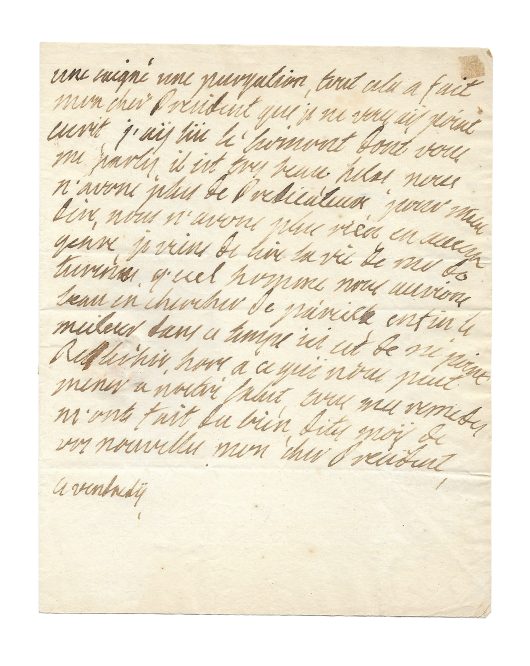 une saigné une purgation, tout cela a fait
mon cher President que je ne vous aÿ point
escrit, j'aÿ lu le sermont dont vous
me parlez, il est tres beau helas nous
n'avons plus de Predicateur, pour mieu
dire, nous n'avons plus rien en aucun
genre, je viens de lire la vie de mr de
turenne, quel homme nous aurions
beau en chercher de pareils enfin le
meileur dans ce temps ici est de ne point
Reflechir, hors a ce qui nous peut
mener a nostre salut, tous mes remedes
m'ont fait du bien, dite moÿ de
vos nouvelles mon cher President,
ce vendredÿ